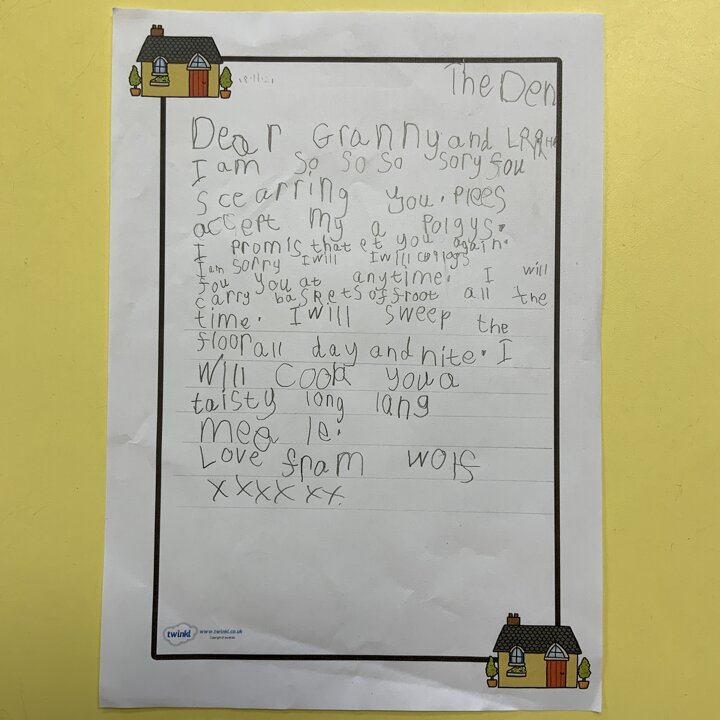 The Den
Dear Granny and
I am so so so sory fou
scearring you. Plees
accept my a polgys.
I promis that et you again.
I am sorry I will I will
fou you at anytime. I will
carry baskets of froot all the
time. I will sweep the
floor all day and nite. I
Will cook you a
taisty long lang
mea le.
Love fram wolf
xxxx xx.
twinkl www.twinkl.co.uk